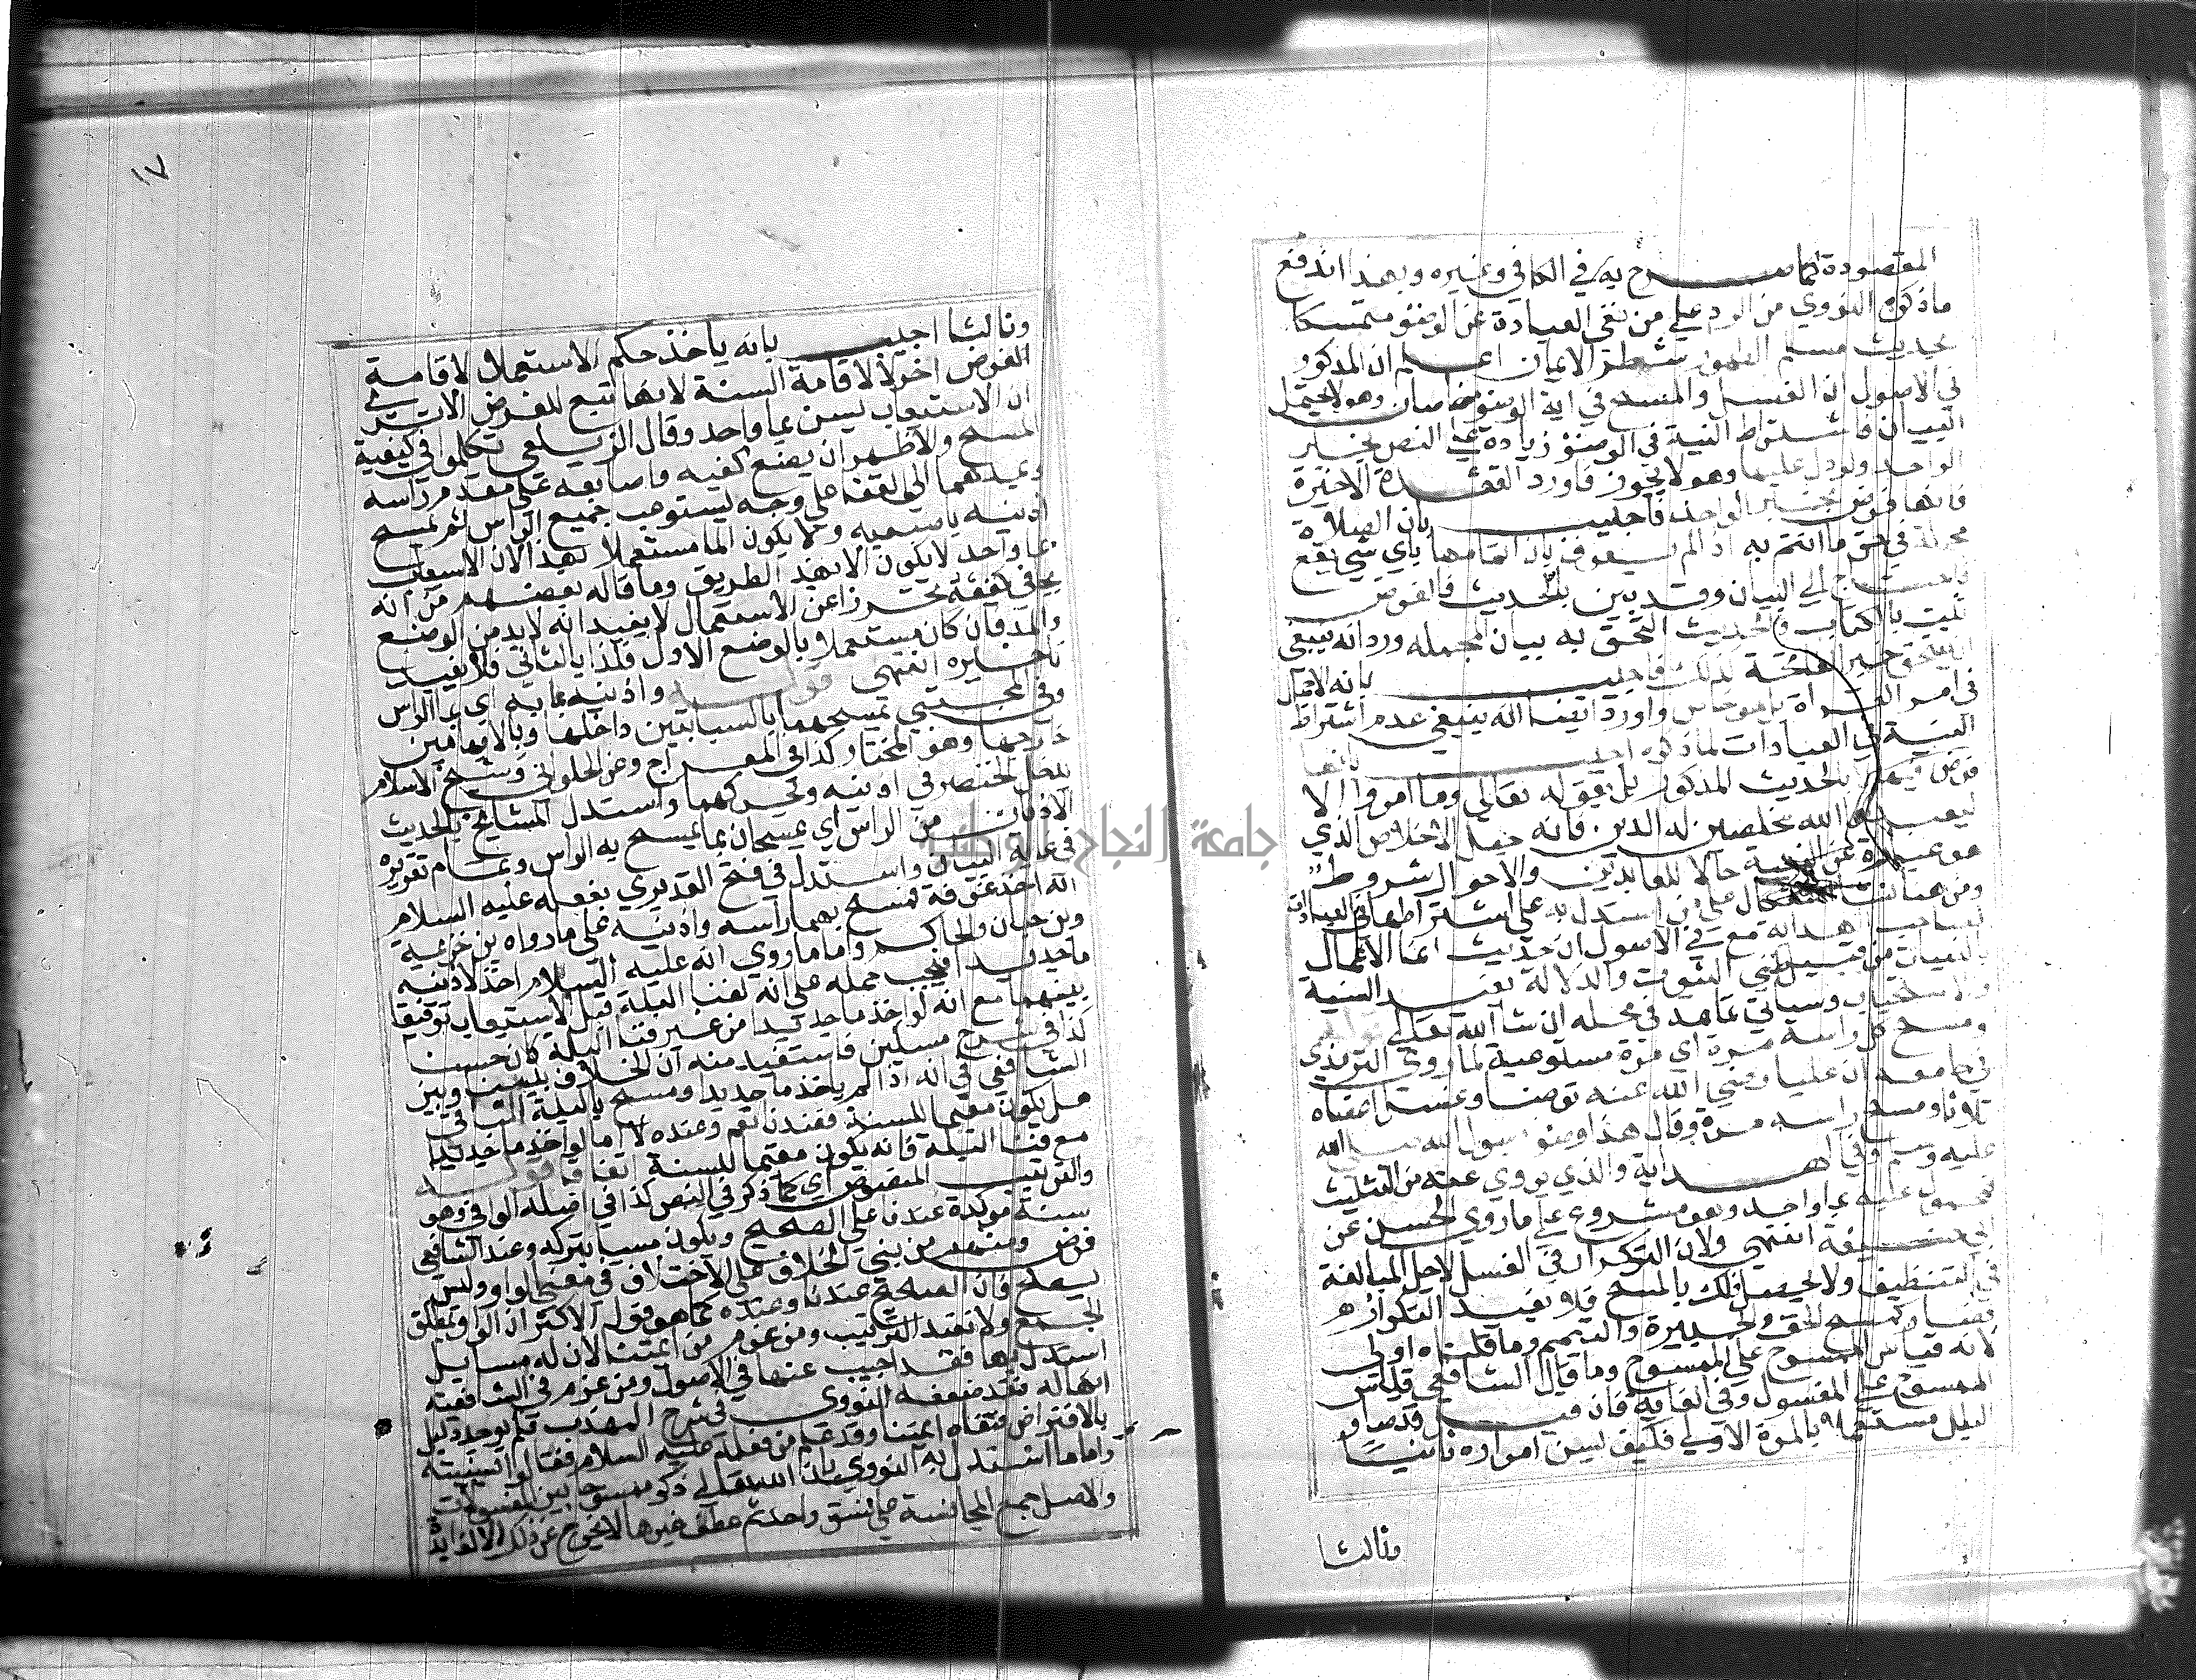 المقصودة كما صرح به في الكافي وغيره وبهذا اندفع
ما ذكره النووي من الرد على من نفى العبادة عن الوضوء متمسكا
بحديث مسلم الطهور شطر الايمان اعلم ان المذكور
في الاصول ان الغسل والمسح في اية الوضوء خاصان وهو لا يحتمل
البيان فاشتراط النية في الوضوء زيادة على النص بخبر
الواحد ولو دل عليها وهو لا يجوز فاورد القعدة الاخيرة
فانها فرض بخبر الواحد فاجيب بان الصلاة
مجملة في حق ما تتم به اذ لم يعرف بان اتمامها باي شي يقع
فاحتاج الى البيان وقد بين بالحديث فالفرض
ثبت بالكتاب والحديث التحق به بيان لمجمله ورد انه ينبغي
ان يلتحق خبر الفاتحة بذلك فاجيب بانه لا اجمال
في امر القراة بل هو خاص واورد ايضا انه ينبغي عدم اشتراط
النية في العبادات لما ذكر اجيب بانها
فرض فيها لا بالحديث المذكور بل بقوله تعالى وما امروا الا
ليعبدوا الله مخلصين له الدين فانه جعل الاخلاص الذي
هو عبارة عن النية حالا للعابدين والاحوال شروط
ومن هنا نشا اشكال على من استدل به على اشتراطها في العبادات
لصاحب الهداية مع في الاصول ان حديث انما الاعمال
بالنيات من قبيل ظني الثبوت والدلالة يفيد السنية
والاستحباب وسياتي تمامه في محله ان شا الله تعالى
ومسح كل راسه مرة اي مرة مستوعبة لما روى الترمذي
في جامعه ان عليا رضي الله عنه توضا وغسل اعضاه
ثلاثا ومسح راسه مرة وقال هذا وضو رسول الله صلى الله
عليه وسلم وفي الهداية والذي يروى عنه من التثليث
محمول عليه بما واحد وهو مشروع على ما روى الحسن عن
ابي حنيفة انتهى ولان التكرار في الغسل لاجل المبالغة
في التنظيف ولا يحصل ذلك بالمسح فلا يفيد التكرار
فصار كمسح الخف والجبيرة والتيمم وما قلناه اولى
لانه قياس الممسوح على الممسوح وما قال الشافعي قياس
الممسوح على المغسول وفي الغاية فان قيل قد صار
البلل مستعملا بالمرة الاولى فكيف يسن امراره ثانيا
وثالثا
١٧
وثالثا اجيب بانه ياخذ حكم الاستعمال لاقامة
الفرض اخر لا لاقامة السنة لانها تبع للفرض الا ترى
ان الاستيعاب يسن بما واحد وقال الزيلعي تكلموا في كيفية
المسح والاظهر ان يضع كفيه واصابعه على مقدم راسه
ويمدهما الى القفا على وجه يستوعب جميع الراس ثم يمسح
اذنيه باصبعيه ولا يكون الما مستعملا بهذا لان الاستيعاب
بما واحد لا يكون الا بهذه الطريق وما قاله بعضهم من انه
يجافي كفيه تحرزا عن الاستعمال لا يفيد انه لا بد من الوضع
والمد فان كان مستعملا بالوضع الاول فكذا بالثاني فلا يفيد
تاخيره انتهى قوله واذنيه بمايه اي بما الراس
وفي المجتبى يمسحهما بالسبابتين داخلهما وبالابهامين
خارجهما وهو المختار كذا في المعراج وعن الحلواني وشيخ الاسلام
يدخل الخنصر في اذنيه ويحركهما واستدل المشايخ بالحديث
الاذنان من الراس اي يمسحان بما يمسح به الراس وتمام تقريره
في غاية البيان واستدل في فتح القدير بفعله عليه السلام
انه اخذ غرفة فمسح بها راسه واذنيه على ما رواه بن خزيمة
وبن حبان والحاكم واما ما روي انه عليه السلام اخذ لاذنيه
ما جديدا فيجب حمله على انه لفنا البلة قبل الاستيعاب توفيقا
بينهما مع انه لو اخذ ما جديدا من غير فنا البلة كان حسنا
كذا في شرح مسكين فاستفيد منه ان الخلاف بيننا وبين
الشافعي في انه اذا لم ياخذ ما جديدا ومسح بالبلة الباقية
هل يكون مقيما للسنة فعندنا نعم وعنده لا اما لو اخذ ما جديدا
مع فنا البلة فانه يكون مقيما للسنة اتفاقا قوله
والترتيب المنصوص اي كما ذكر في النص كذا في اصله الوافي وهو
سنة موكدة عندنا على الصحيح ويكون مسيا بتركه وعند الشافعي
فرض ومنهم من بنى الخلاف على الاختلاف في معنى الواو وليس
بصحيح فان الصحيح عندنا وعنده كما هو قول الاكثر ان الواو لمطلق
الجمع ولا تفيد الترتيب ومن زعم من ائمتنا لان له مسايل
استدل بها فقد اجيب عنها في الاصول ومن زعم من الشافعية
انها له فقد ضعفه النووي في شرح المهذب فلم يوجد دليل
بالافتراض فنفاه ائمتنا وقد علم من فعله عليه السلام فقالوا بسنيته
واما ما استدل به النووي بان الله تعالى ذكر ممسوحا بين المغسولات
والاصل جمع المجانسة على نسق واحد ثم عطف غيرها لا يخرج عن ذلك الا لفايدة
جامعة النجاح الوطنية